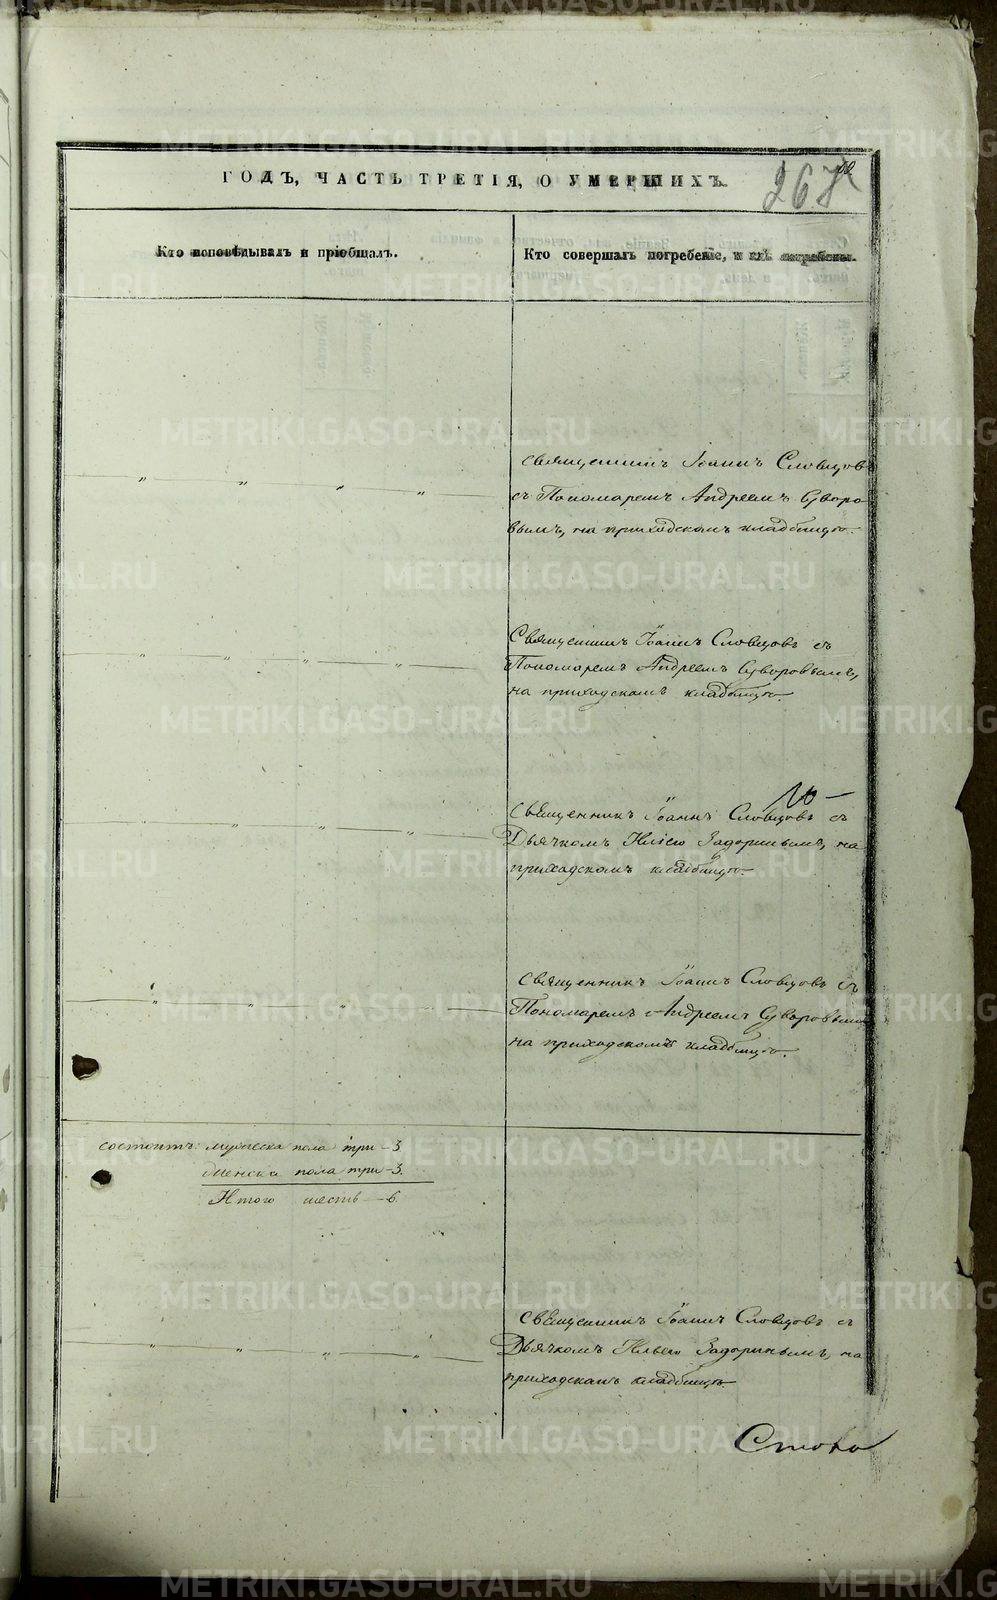 ГОДЪ, ЧАСТЬ ТРЕТІЯ, О УМЕРШИХЪ.
268
Кто исповѣдывалъ и пріобщалъ.
Кто совершалъ погребеніе, и гдѣ погребены.
Священникъ Іоаннъ Словцовъ
съ Пономаремъ Андреемъ Суворо
вымъ, на приходскомъ кладбищѣ.
Священникъ Іоаннъ Словцовъ съ
Пономаремъ Андреемъ Суворовымъ,
на приходскомъ кладбищѣ.
Священникъ Іоаннъ Словцовъ съ
Дьячкомъ Иліею Задоринымъ, на
приходскомъ кладбищѣ.
Священникъ Іоаннъ Словцовъ съ
Пономаремъ Андреемъ Суворовымъ
на приходскомъ кладбищѣ.
состоитъ: мужеска пола три - 3.
женска пола три - 3.
Итого шесть - 6.
Священникъ Іоаннъ Словцовъ съ
Дьячкомъ Ильею Задоринымъ, на
приходскомъ кладбищѣ.
METRIKI.GASO-URAL.RU